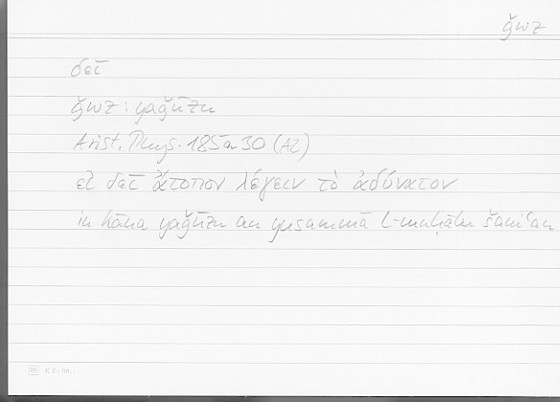 ǧwz
δεῖ
ǧwz : yaǧūzu
Arist. Phys. 185a30 (Az)
εἰ δεῖ ἄτοπον λέγειν τὸ ἀδύνατον
in kāna yaǧūzu an yusammā l-muḥālu šanīʿan